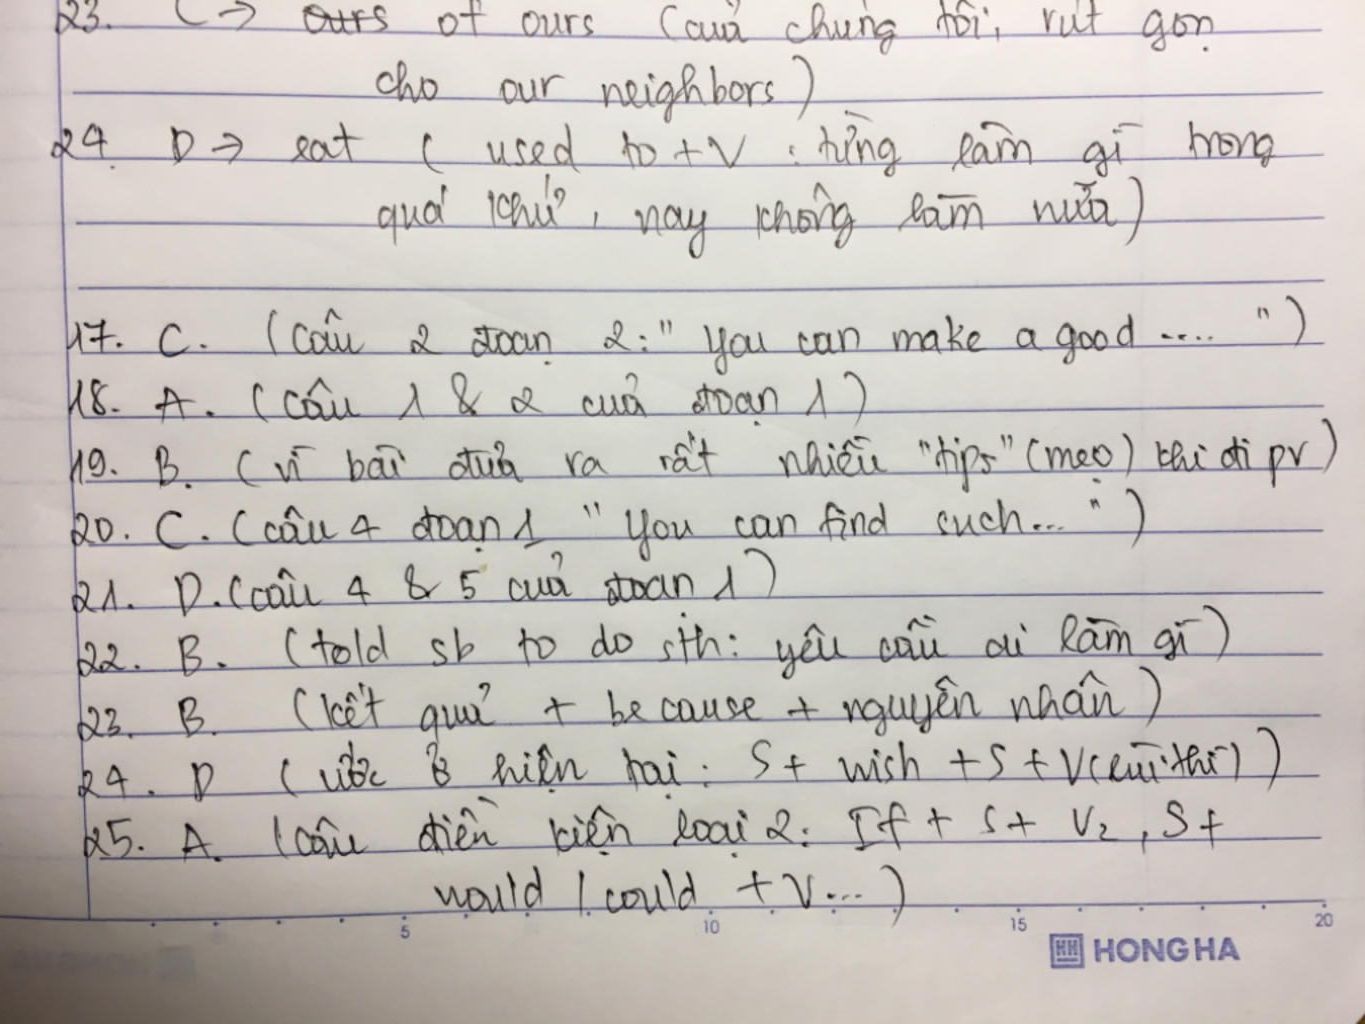 23. C → ours of ours (của chúng tôi, rút gọn
cho our neighbors)
24 D → eat ( used to + V : từng làm gì trong
quá khứ, nay không làm nữa)
17. C. (câu 2 đoạn 2: " You can make a good .... ")
18. A. (câu 1 & 2 của đoạn 1)
19. B. (vì bài đưa ra rất nhiều "tips" (mẹo) khi đi pv)
20. C. (câu 4 đoạn 1 " You can find such... ")
21. D. (câu 4 & 5 của đoạn 1)
22. B. (told sb to do sth: yêu cầu ai làm gì)
23. B. (kết quả + because + nguyên nhân)
24. D (ước ở hiện tại: S + wish + S + V(lùi thì))
25. A. (câu điền kiện loại 2: If + S + V2, S +
would / could + V...)
5 10 15 20
HH HONG HA